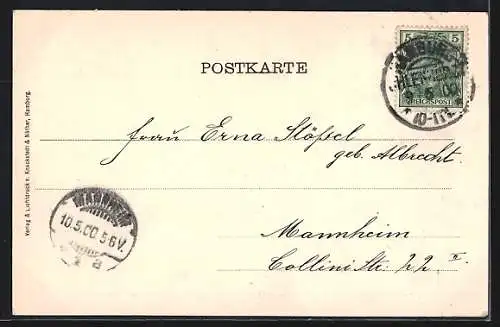 5 5
REICHSPOST
10-11V.
POSTKARTE
Frau Erna Stößel
geb. Albrecht.
Mannheim
Collini Str. 22 II.
MANNHEIM
10.5.00.5-6V.
a
Verlag & Lichtdruck v. Knackstedt & Näther, Hamburg.